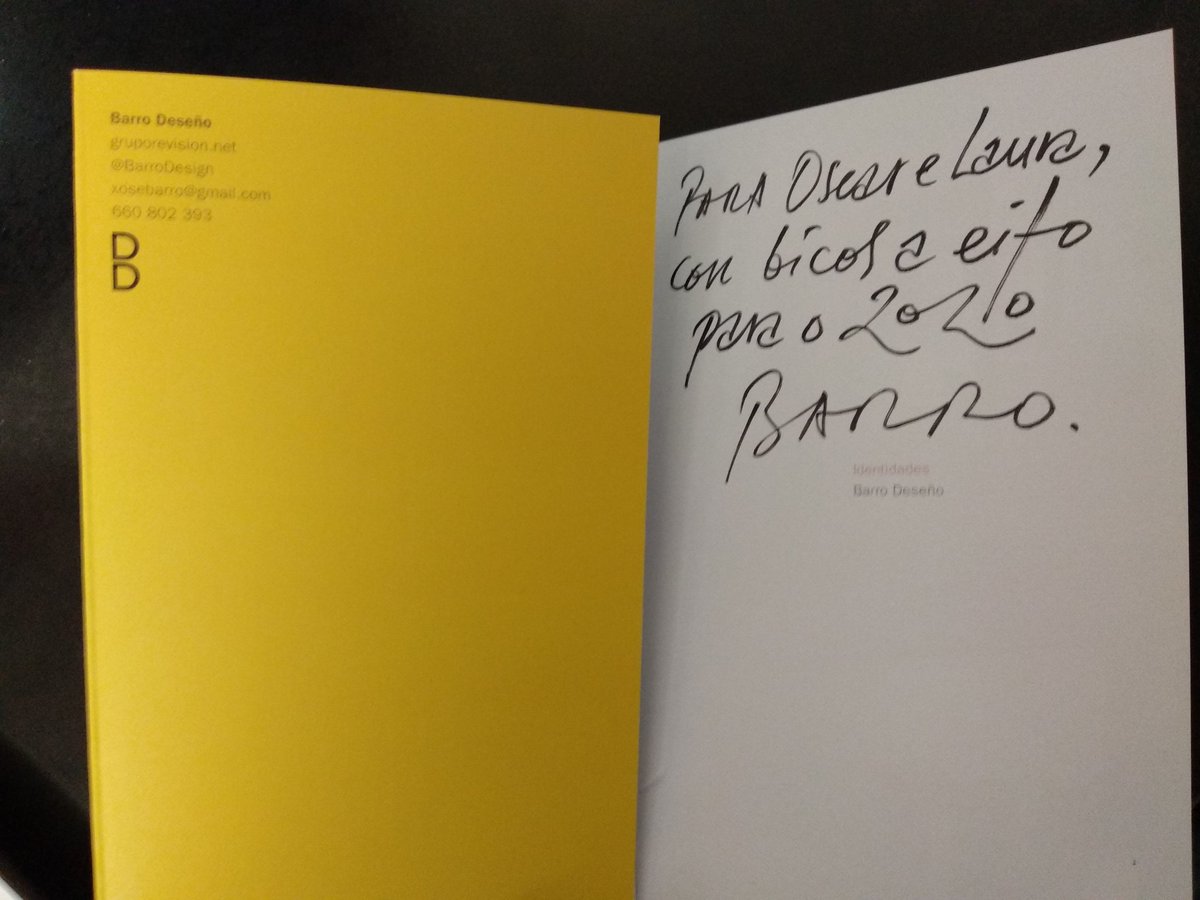 Barro Deseño
gruporevision.net
@BarroDesign
xosebarro@gmail.com
660 802 393
D
D
PARA Oscar e Laura,
con bicos a eito
para o 2020
BARRO.
Identidades
Barro Deseño